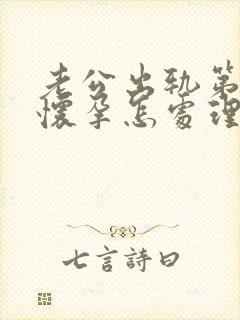 老公出轨第
懷孕怎處理
七言詩曰